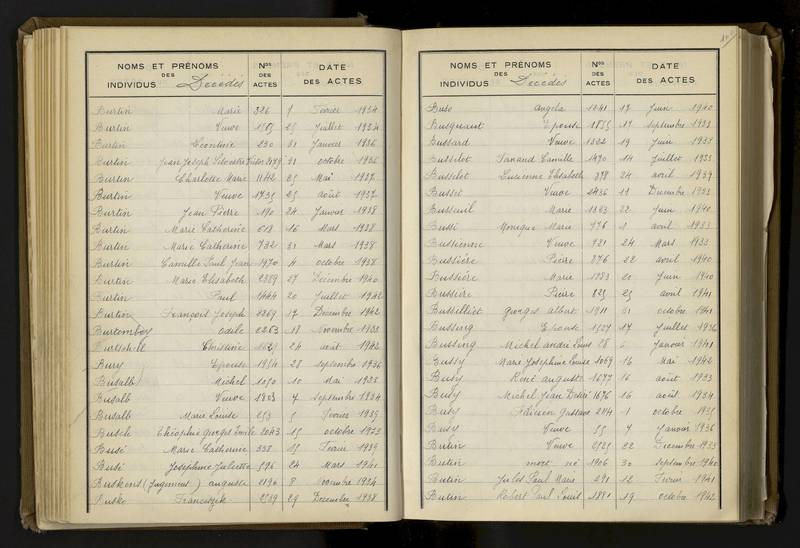 NOMS ET PRÉNOMS DES INDIVIDUS Décédés
Nos DES ACTES
DATE DES ACTES
Burtin Marie 326 9 Février 1934
Burtin Veuve 25 Juillet 1934
Burtin Léontine 230 31 Janvier 1936
Burtin Jean Joseph Silvestre 31 octobre 1936
Burtin Charlotte Marie 1142 25 Mai 1937
Burtin Veuve 1735 25 août 1937
Burtin Jean Pierre 190 24 Janvier 1938
Burtin Marie Catherine 618 16 Mars 1938
Burtin Marie Catherine 732 31 Mars 1938
Burtin Camille Paul Jean 1970 4 octobre 1938
Burtin Marie Elisabeth 2289 27 Décembre 1940
Burtin Paul 1444 20 Juillet 1942
Burtin François Joseph 2369 17 Décembre 1942
Burtomboy Odile 2263 18 Novembre 1933
Christine 24 août 1943
Bury Epouse 1954 28 septembre 1936
Busalb Michel 1070 10 Mai 1933
Busalb Veuve 1803 4 Septembre 1934
Busalb Marie Louise 253 5 Février 1935
Busch Théophile Georges Emile 2043 15 octobre 1933
Busé Marie Catherine 338 15 Février 1935
Busé Joséphine Juliette 596 24 Mars 1941
Buskens (Jugement) auguste 2196 8 Novembre 1934
Buske Franciszek 2259 29 Décembre 1938
NOMS ET PRÉNOMS DES INDIVIDUS Décédés
Nos DES ACTES
DATE DES ACTES
Buso Angela 1241 17 Juin 1940
Busquaut Epouse 1855 19 septembre 1933
Bussard Veuve 1322 19 Juin 1933
Busselot Fernand Camille 1470 14 Juillet 1933
Busselot Lucienne Elisabeth 398 24 avril 1939
Busset Veuve 2436 11 Décembre 1933
Busseuil Marie 1263 22 Juin 1940
Bussi Monique Marie 776 1 avril 1933
Bussienne Veuve 721 24 Mars 1933
Bussière Pierre 876 22 avril 1940
Bussière Marie 1283 20 Juin 1940
Bussière Pierre 825 25 avril 1941
Bussilliet Georges Albert 1911 31 octobre 1941
Bussing Epouse 1527 17 Juillet 1936
Bussing Michel André Louis 28 6 Janvier 1941
Bussy Marie Joséphine Louise 1069 16 Mai 1942
Busy René auguste 1677 16 août 1933
Busy Michel Jean Désiré 1676 16 août 1934
Busy Gustave 2114 1 octobre 1935
Busy Veuve 55 7 Janvier 1936
Butin Veuve 2525 22 Décembre 1933
Butin mort né 1906 30 septembre 1940
Butin Jules Paul Marie 291 12 Février 1941
Butin Robert Paul Louis 1881 19 octobre 1942